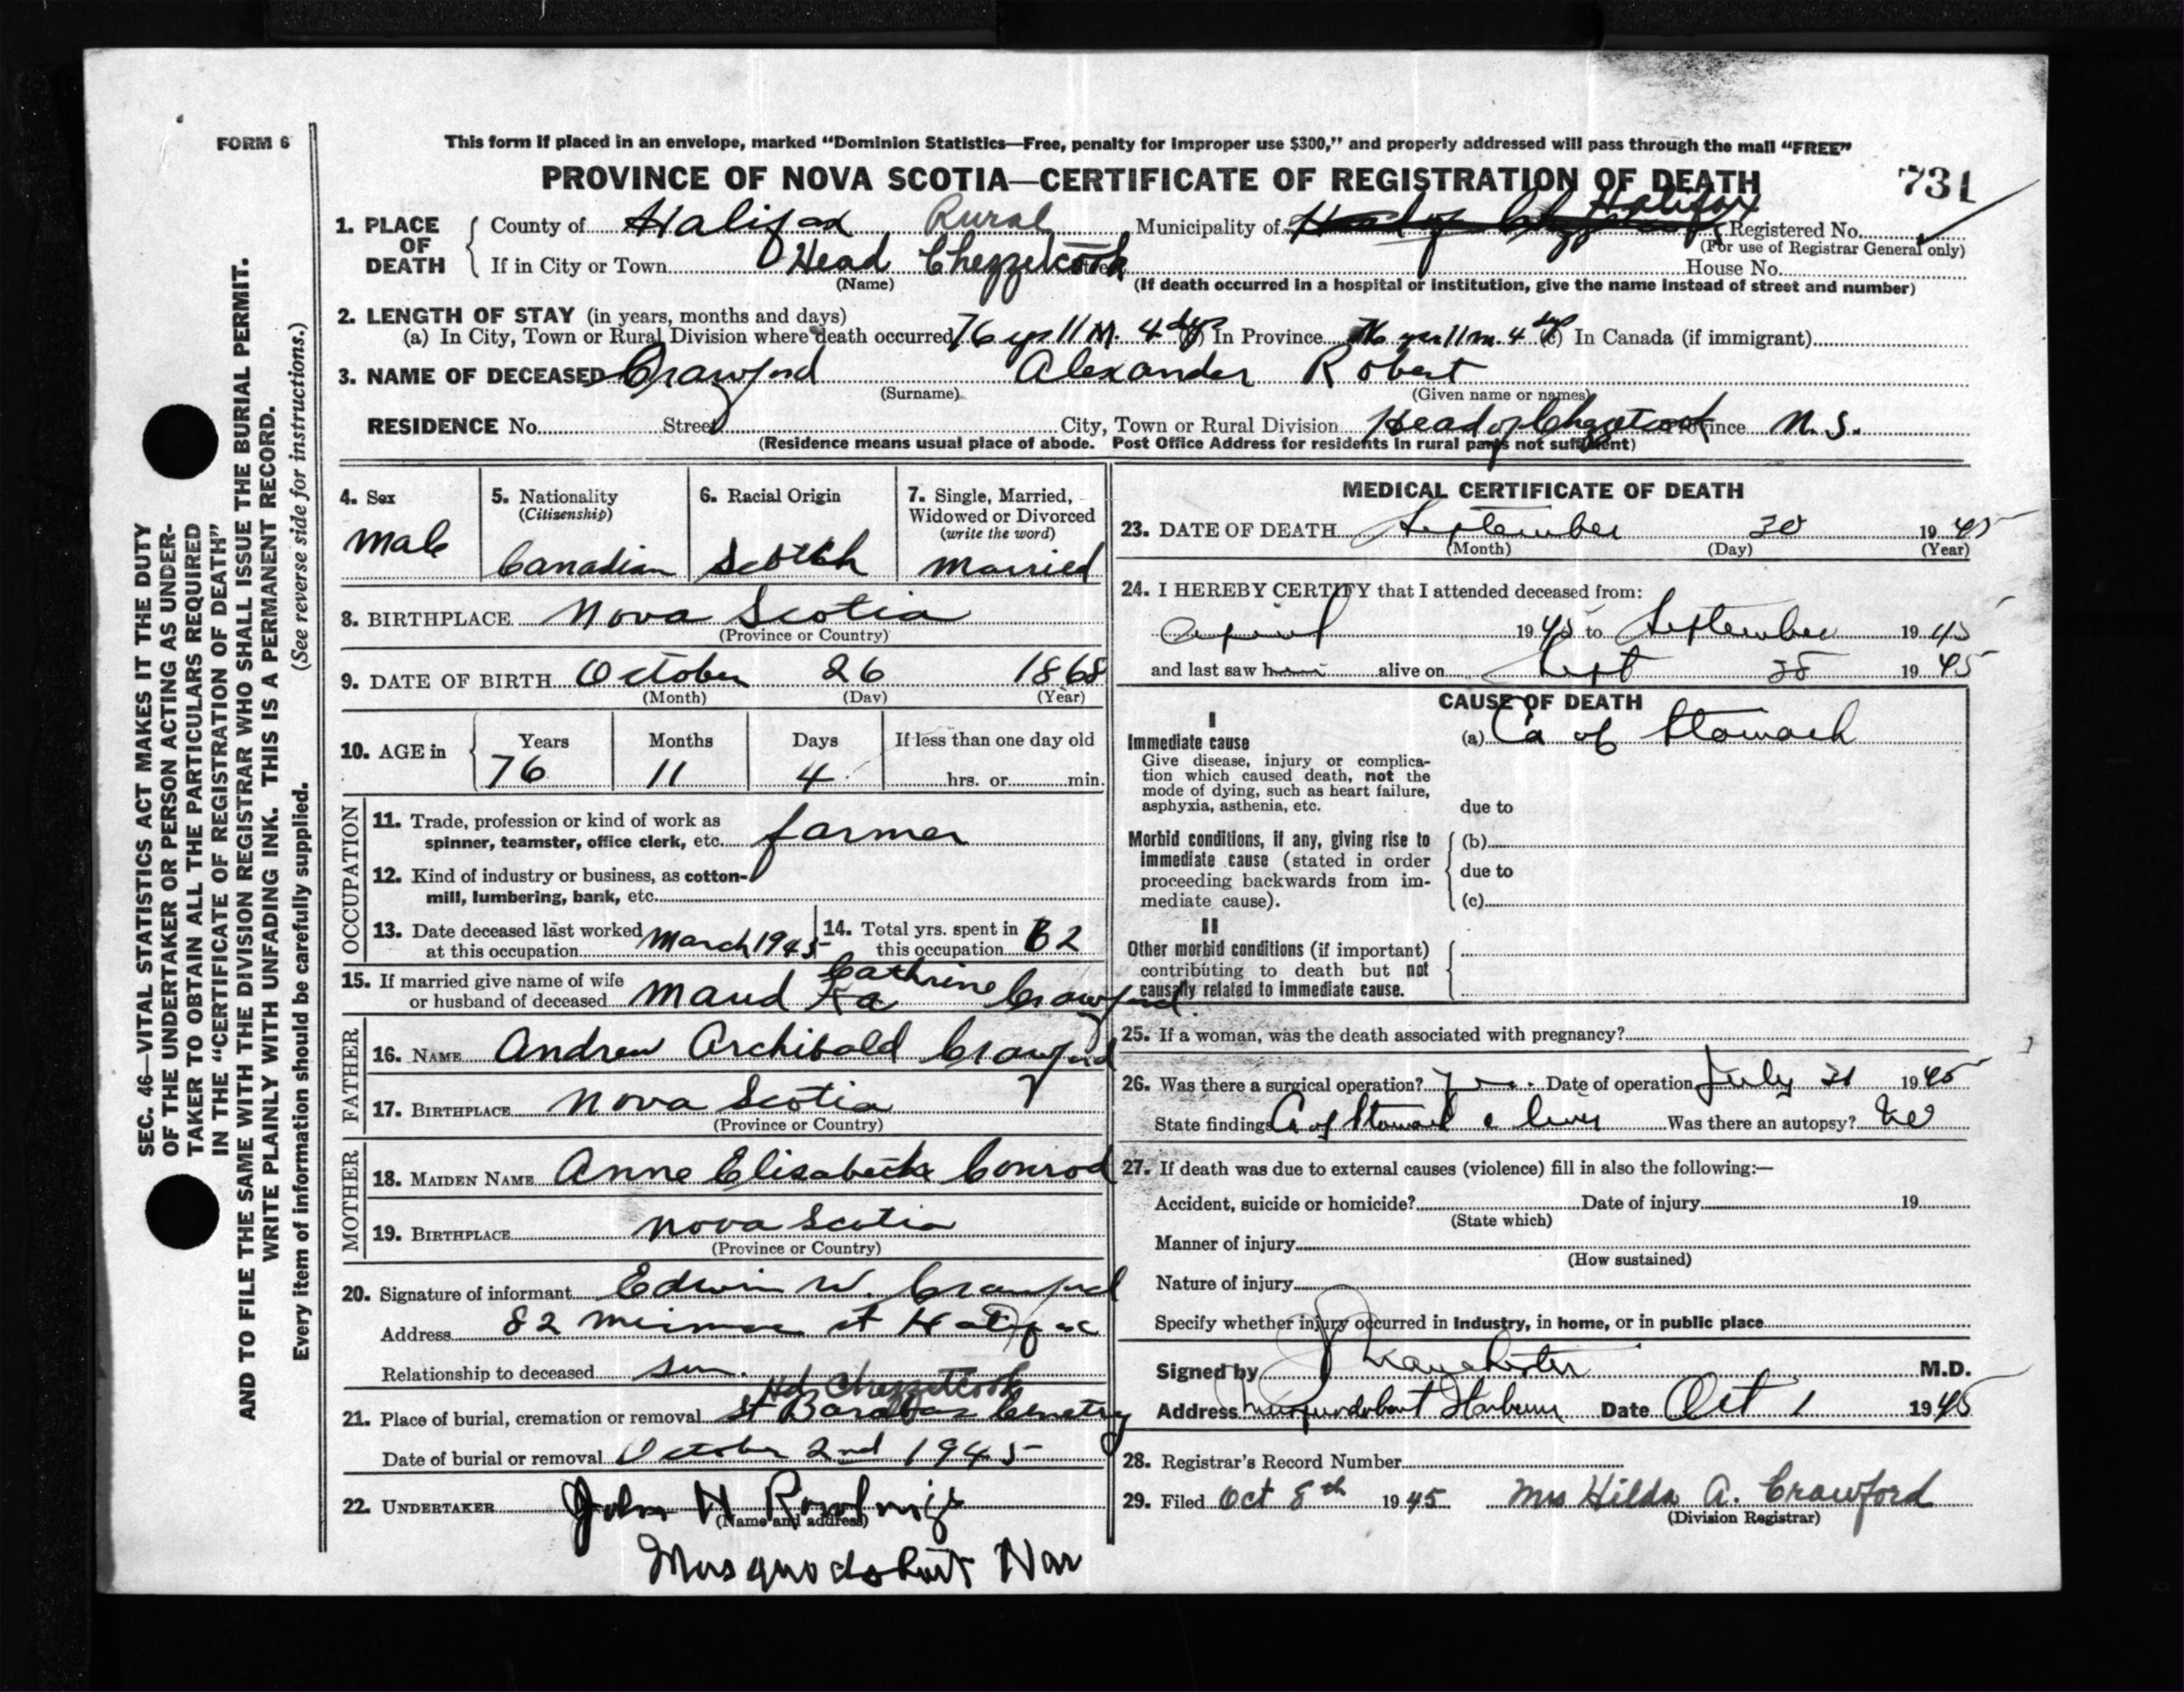 FORM 6
This form if placed in an envelope, marked “Dominion Statistics—Free, penalty for improper use $300,” and properly addressed will pass through the mail “FREE”
PROVINCE OF NOVA SCOTIA—CERTIFICATE OF REGISTRATION OF DEATH
731
1. PLACE OF DEATH
County of Halifax Rural Municipality of Halifax Registered No.
(For use of Registrar General only)
If in City or Town Head Chezzetcook House No.
(Name) (If death occurred in a hospital or institution, give the name instead of street and number)
2. LENGTH OF STAY (in years, months and days)
(a) In City, Town or Rural Division where death occurred 76 yrs 11 M. 4 dys In Province 76 yrs 11 m. 4 dys (c) In Canada (if immigrant)
3. NAME OF DECEASED Crawford Alexander Robert
(Surname) (Given name or names)
RESIDENCE No. Street City, Town or Rural Division Head of Chezzetcook Province N. S.
(Residence means usual place of abode. Post Office Address for residents in rural parts not sufficient)
4. Sex
male
5. Nationality
(Citizenship)
Canadian
6. Racial Origin
Scotch
7. Single, Married,
Widowed or Divorced
(write the word)
married
8. BIRTHPLACE Nova Scotia
(Province or Country)
9. DATE OF BIRTH October 26 1868
(Month) (Day) (Year)
10. AGE in Years Months Days If less than one day old
76 11 4 hrs. or min.
OCCUPATION
11. Trade, profession or kind of work as
spinner, teamster, office clerk, etc. farmer
12. Kind of industry or business, as cotton-
mill, lumbering, bank, etc.
13. Date deceased last worked
at this occupation March 1945
14. Total yrs. spent in
this occupation 62
15. If married give name of wife
or husband of deceased Maud Ka Cathrine Crawford
FATHER
16. NAME Andrew Archibald Crawford
17. BIRTHPLACE Nova Scotia
(Province or Country)
MOTHER
18. MAIDEN NAME Anne Elisabeth Conrod
19. BIRTHPLACE Nova Scotia
(Province or Country)
20. Signature of informant Edwin W. Crawford
Address 82 st Halifax
Relationship to deceased son.
Hd Chezzetcook
21. Place of burial, cremation or removal St Cemetry
Date of burial or removal October 2nd 1945
22. UNDERTAKER John H
(Name and address)
Musquodoboit Har
MEDICAL CERTIFICATE OF DEATH
23. DATE OF DEATH September 30 1945
(Month) (Day) (Year)
24. I HEREBY CERTIFY that I attended deceased from:
April 1945 to September 1945
and last saw him alive on Sept 1945
CAUSE OF DEATH
I
Immediate cause
Give disease, injury or complica-
tion which caused death, not the
mode of dying, such as heart failure,
asphyxia, asthenia, etc.
(a) Ca of Stomach
due to
Morbid conditions, if any, giving rise to
immediate cause (stated in order
proceeding backwards from im-
mediate cause).
(b)
due to
(c)
II
Other morbid conditions (if important)
contributing to death but not
causally related to immediate cause.
25. If a woman, was the death associated with pregnancy?
26. Was there a surgical operation? Yes. Date of operation July 31 1945
State findings Ca of Stomach c liver Was there an autopsy? No
27. If death was due to external causes (violence) fill in also the following:—
Accident, suicide or homicide? Date of injury 19
(State which)
Manner of injury
(How sustained)
Nature of injury
Specify whether injury occurred in industry, in home, or in public place
Signed by M.D.
Address Musquodoboit Harbour Date Oct 1 1945
28. Registrar's Record Number
29. Filed Oct 8th 1945 Mrs Hilda A. Crawford
(Division Registrar)
SEC. 46—VITAL STATISTICS ACT MAKES IT THE DUTY
OF THE UNDERTAKER OR PERSON ACTING AS UNDER-
TAKER TO OBTAIN ALL THE PARTICULARS REQUIRED
IN THE “CERTIFICATE OF REGISTRATION OF DEATH”
AND TO FILE THE SAME WITH THE DIVISION REGISTRAR WHO SHALL ISSUE THE BURIAL PERMIT.
WRITE PLAINLY WITH UNFADING INK. THIS IS A PERMANENT RECORD.
Every item of information should be carefully supplied. (See reverse side for instructions.)